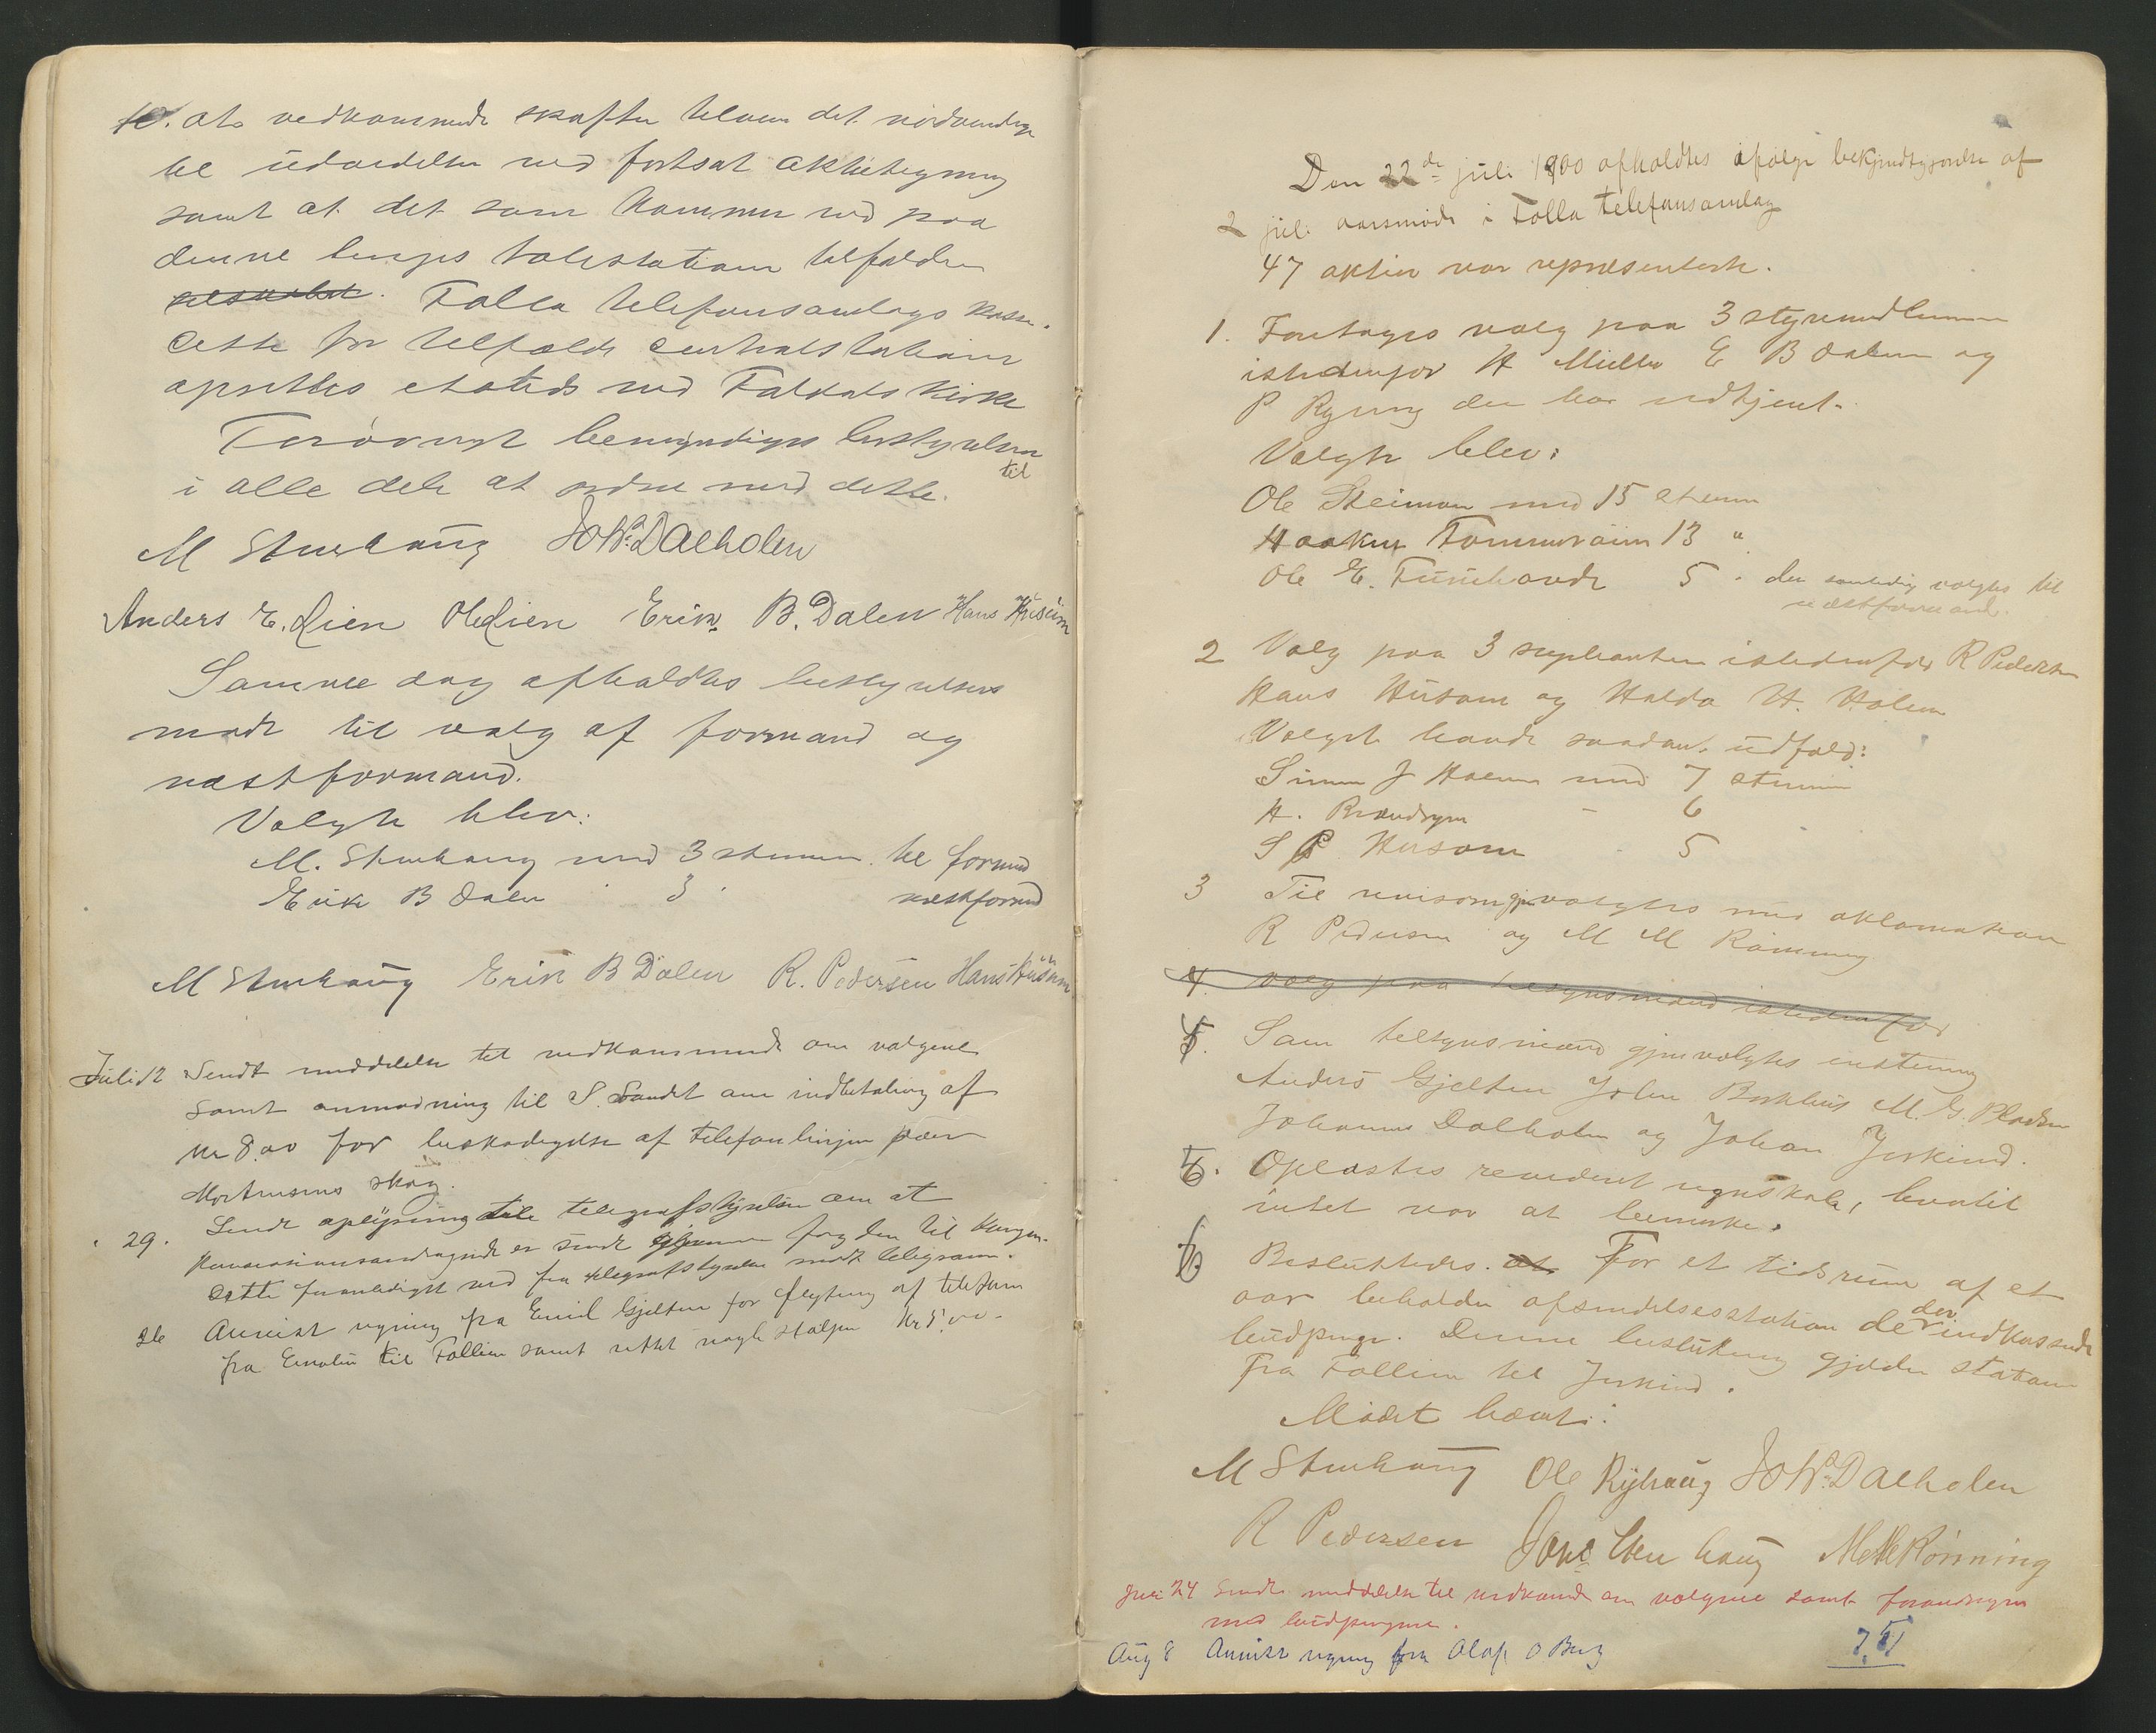 10. at vedkommende skaffer tilveie det nødvendige
til udvidelsen ved fortsat aktietegning
samt at det som kommer ind paa
denne linjes talestation tilfalder
selskabet. Folla telefonsamlags kasse.
Dette for tilfælde centralstation
oprettes etsteds ved Foldals kirke
Forøvrigt bemyndiges bestyrelsen til
i alle dele at ordne med dette.
M Streihaug Joh. P. Dalholen
Anders E. Lien Ole Lien Erik B. Dalen Hans Husum
Samme dag afholdtes bestyrelses
møde til valg af formand og
næstformand.
Valgte blev:
M. Streihaug med 3 stemmer til formand
Erik B Dalen " 3 " næstformand
M Streihaug Erik B Dalen R. Pedersen Hans Husum
Juli 12 Sendt meddelelse til vedkommende om valgene
samt anmodning til S. Sandet om indbetaling af
kr 8.00 for beskadigelse af telefonlinjen paa
Mortensens skog.
" 29. Sendt oplysning til telegrafstyrelsen om at
koncessionsandragende er sendt gjennem fogden til Kongen.
Dette foranlediget ved fra telegrafstyrelsen modt. telegram.
Anvist regning fra Emil Gjelten for flytning af telefon
fra til Follien samt rettet nogle stolper Kr 5.00.
Den 22de juli 1900 afholdtes ifølge bekjendtgjørelse af
2 juli aarsmøde i Folla telefonsamlag
47 aktier var repræsenterte.
1. Foretages valg paa 3 styremedlemmer
istedenfor H Müller E B Dalen og
P Ryeng der har udtjent.
Valgte blev:
Ole Steimoen med 15 stemmer
Haaken Tommeraien 13 "
Ole E. 5 " der samtidig valgtes til
næstformand.
2 Valg paa 3 suppleanter istedenfor R Pedersen
Hans Husom og Haldo H. Holen
Valget havde saadant udfald:
Simen J Holen med 7 stemmer
H. Brændryen - 6
S P Husom - 5
3 Til revisorer gjenvalgtes med aklamation
R Pedersen og M M Rønning
4. Valg paa tilsynsmænd istedenfor
5. Som tilsynsmænd gjenvalgtes enstemmig
Anders Gjelten John Borkhus M. G. Pladsen
Johannes Dalholen og Johan Jerkind.
6. Oplæstes revideret regnskab, hvortil
intet var at bemerke.
Besluttedes. at For et tidsrum af et
aar beholder afsendelsesstation de der indkasserede
budpenge. Denne beslutning gjælder stationer
fra Follien til Jerkind.
Mødet hævet.
M Streihaug Ole Ryhaug Joh. P. Dalholen
R Pedersen Jons Streihaug M M Rønning
Juli 24 Sendt meddelelse til vedkommende om valgene samt forandringen
med budpengene.
Aug 8 Anvist regning fra Olaf O Berg